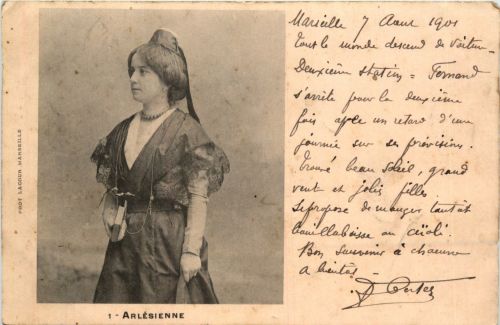 Marseille 7 Avril 1901
Tout le monde descend de voiture
Deuxième station = Fernand
s'arrête pour la deuxième
fois après un retard d'une
journée sur ses prévisions.
Trouvé beau soleil, grand
vent et jolies filles
Se propose de manger tantôt
bouillabaisse ou aïoli.
Bon souvenir à chacun
à bientôt -
PHOT LACOUR MARSEILLE
1 - ARLÉSIENNE